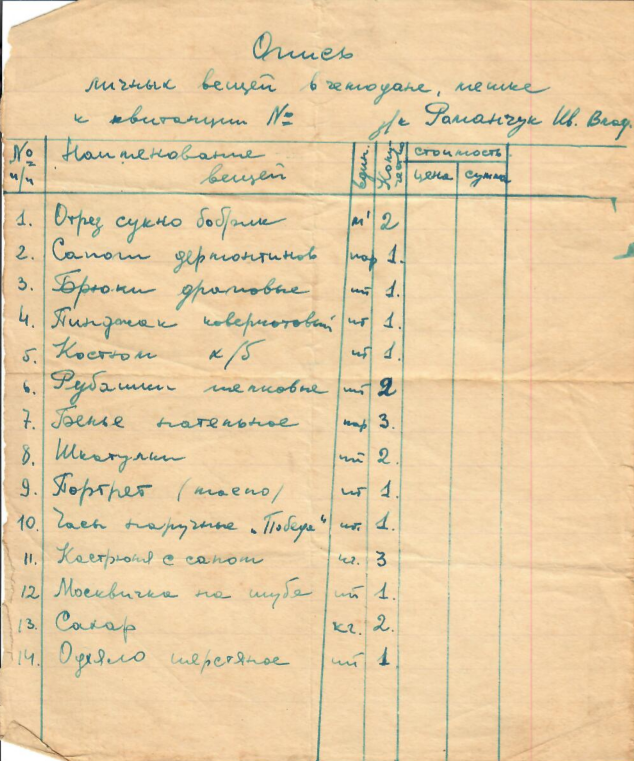 Опись
личных вещей в чемодане, мешке
к квитанции № з/к Раманчук Ив. Влад.
№ п/п Наименование вещей един. Количество стоимость
цена сумма
1. Отрез сукно бобрик м' 2
2. Сапоги дермонтинов пар 1.
3. Брюки драповые шт 1.
4. Пинджак коверкотовый шт 1.
5. Костюм х/б шт 1.
6. Рубашки шелковые шт 2
7. Белье нательное пар 3.
8. Шкатулки шт 2.
9. Портрет (масло) шт 1.
10. Часы наручные „Победа" шт. 1.
11. Кастрюля с салом кг. 3
12 Москвичка на шубе шт 1.
13. Сахар кг. 2.
14. Одеяло шерстяное шт 1.